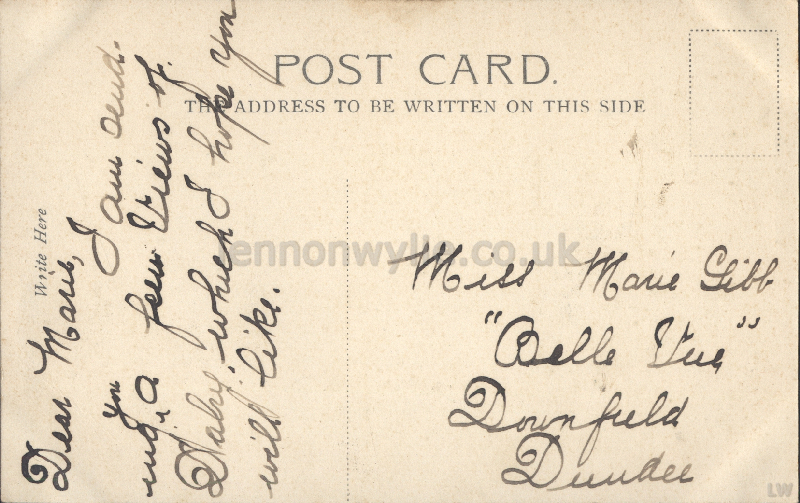 POST CARD.
THE ADDRESS TO BE WRITTEN ON THIS SIDE
Write Here
Dear Marie,
I am send-
ing you a few Views of
Dalry, which I hope you
will like.
Miss Marie Gibb
"Belle Vue"
Downfield
Dundee
lennonwylie.co.uk
LW